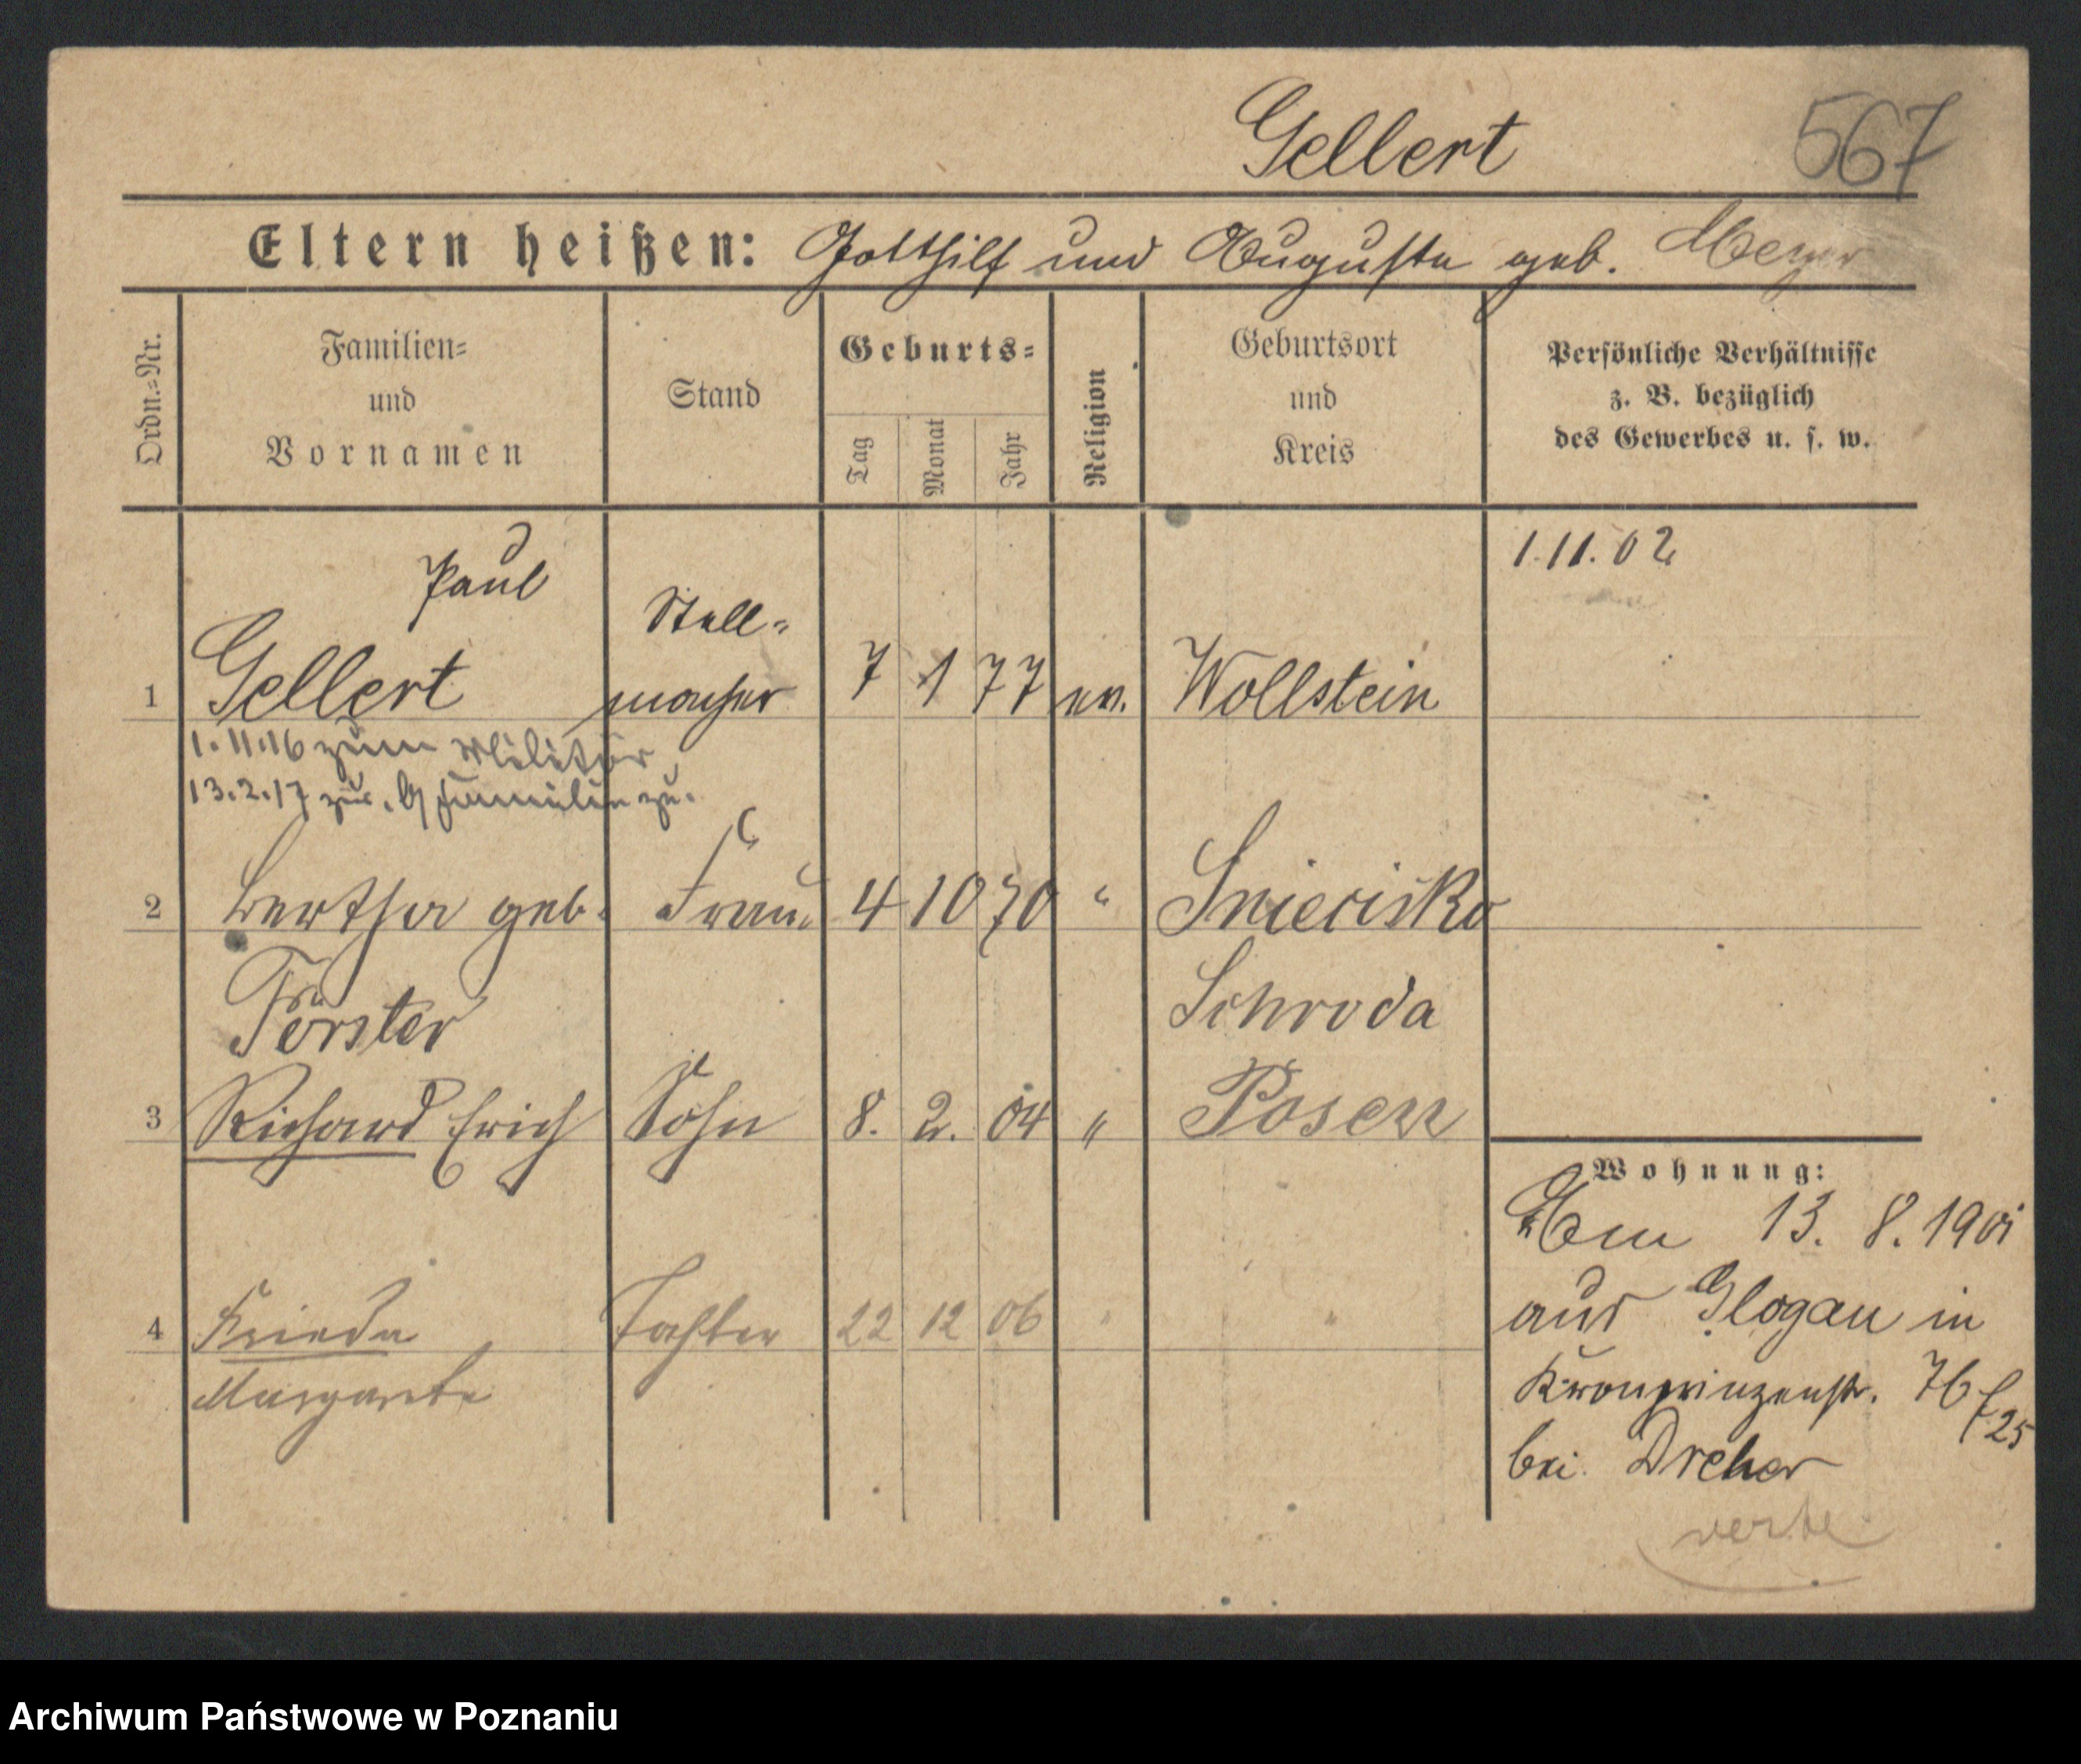 Gellert 567
Eltern heißen: Gotthilf und Auguste geb. Meyer
Ordn.-Nr.
Familien-
und
Vornamen
Stand
Geburts-
Tag
Monat
Jahr
Religion
Geburtsort
und
Kreis
Persönliche Verhältnisse
z. B. bezüglich
des Gewerbes u. s. w.
1.11.02
Paul
Stell-
1 Gellert macher 7 1 77 ev. Wollstein
1.11.16 zum Militär
13.2.17 zur Familie zu.
2 Bertha geb. Frau 4 10 70 " Snieciska
Förster Schroda
3 Richard Erich Sohn 8. 2. 04 " Posen
Wohnung:
Am 13. 8. 1901
aus Glogau in
4 Frieda Tochter 22 12 06 " "
Margarete
Kronprinzenstr. 76/25
bei Dreher
verte
Archiwum Państwowe w Poznaniu